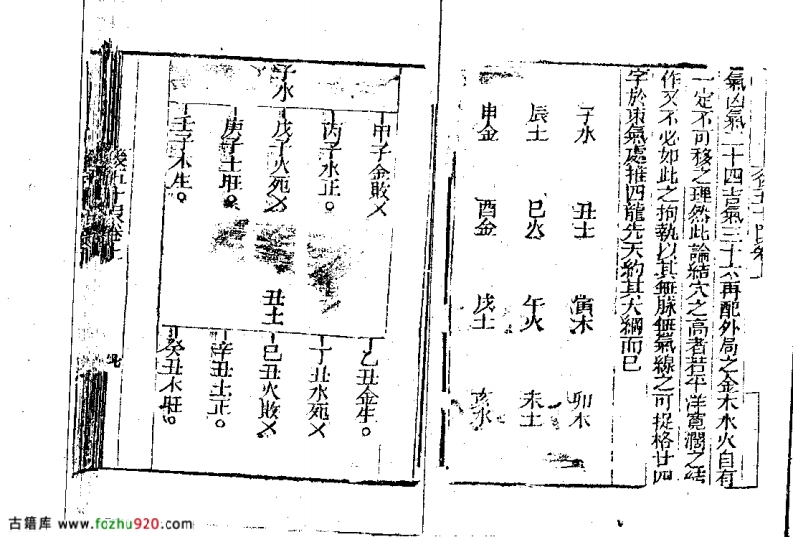 氣凶氣二十四吉氣三十六再配外局之金木水火自有
一定不可移之理然此論結穴之高者若平洋寬濶之結
作又不必如此之拘執以其無脉無氣線之可捉格廿四
字於束氣處推四龍先天約其大綱而已
子水 丑土 寅木 卯木
辰土 巳火 午火 未土
申金 酉金 戌土 亥水
子水
甲子金敗乂
丙子水正。
戊子火死乂
庚子土旺。
壬子木生。
丑土
乙丑金生。
丁丑水死乂
己丑火敗乂
辛丑土正。
癸丑木旺。
古籍库 www.fozhu920.com